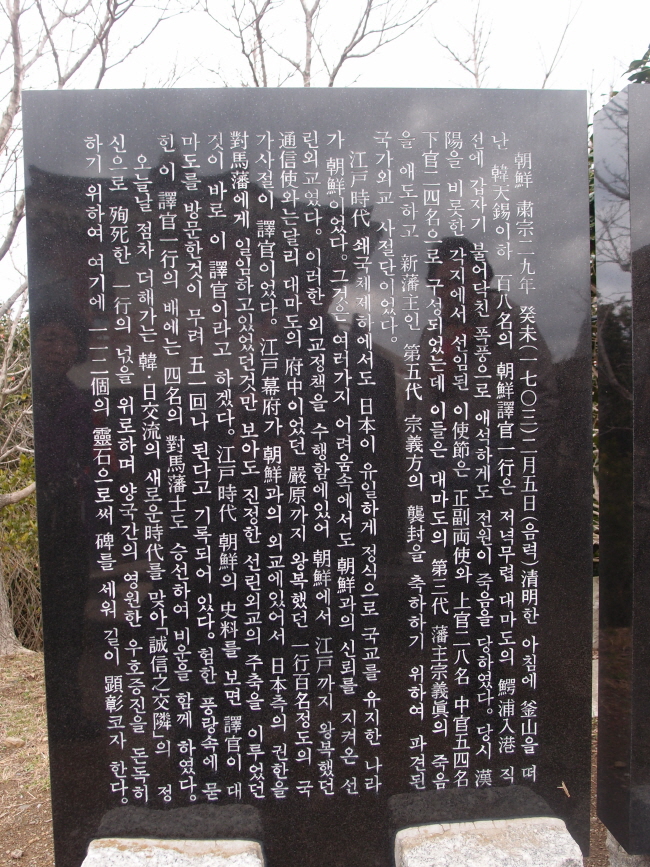 朝鮮 肅宗二九年 癸未(一七〇三)二月五日(음력)清明한 아침에 釜山을 떠
난 韓天錫이하 百八名의 朝鮮譯官一行은 저녁무렵 대마도의 鰐浦入港 직
전에 갑자기 불어닥친 폭풍으로 애석하게도 전원이 죽음을 당하였다。당시 漢
陽을 비롯한 각지에서 선임된 이使節은 正副両使와 上官二八名 中官五四名
下官二四名으로 구성되었는데 이들은 대마도의 第三代 藩主宗義眞의 죽음
을 애도하고 新藩主인 第五代 宗義方의 襲封을 축하하기 위하여 파견된
국가외교 사절단이었다。
江戸時代 쇄국체제하에서도 日本이 유일하게 정식으로 국교를 유지한 나라
가 朝鮮이었다。그것은 여러가지 어려움속에서도 朝鮮과의 신뢰를 지켜온 선
린외교였다。이러한 외교정책을 수행함에있어 朝鮮에서 江戸까지 왕복했던
通信使와는달리 대마도의 府中이었던 嚴原까지 왕복했던 一行百名정도의 국
가사절이 譯官이었다。江戸幕府가 朝鮮과의 외교에있어서 日本측의 권한을
對馬藩에게 일임하고있었던것만 보아도 진정한 선린외교의 주축을 이루었던
것이 바로 이 譯官이라고 하겠다。江戸時代 朝鮮의 史料를 보면 譯官이 대
마도를 방문한것이 무려 五一回나 된다고 기록되어 있다。험한 풍랑속에 묻
힌 이 譯官一行의 배에는 四名의 對馬藩士도 승선하여 비운을 함께 하였다。
오늘날 점차 더해가는 韓・日交流의 새로운時代를 맞아「誠信之交隣」의 정
신으로 殉死한 一行의 넋을 위로하며 양국간의 영원한 우호증진을 돈독히
하기 위하여 여기에 一一二個의 靈石으로써 碑를 세워 길이 顕彰코자 한다。